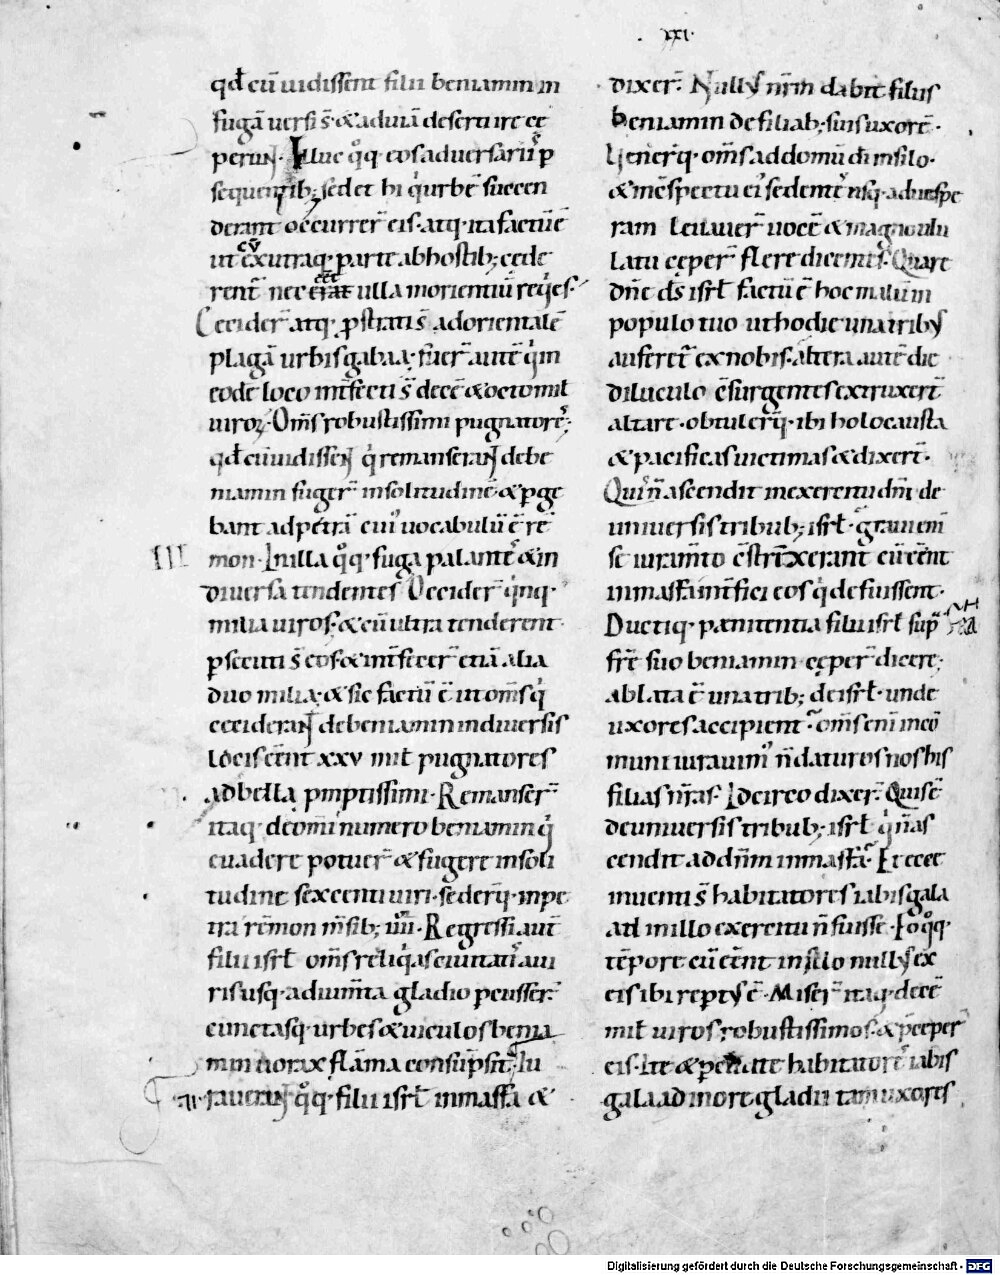 .xxi.
qđ cū uidissent filii beniamin in
fugā uersi s̄ · & ad uiā deserti ire cę
perunt · Illuc qͦq· eos aduersarii ꝑ
sequentib; sed et hi qi urbē succen
derant occurrer̄ eis · atq· ita factū ē
ut ex utraq· parte ab hostib; cede
rent̄ nec erat ulla morientiū reqies ·
Cecider̄ atq· ꝓstrati s̄ ad orientalē
plagā urbis gabaa · fuer̄ autē qi in
eodē loco int̄fecti s̄ decē & octo mil̄
uiroꝝ · Om̄s robustissimi pugnatores ;
qđ cū uidissent qi remanserant de be
niamin fuger̄ in solitudinē & ꝑge
bant ad petrā cuiꝰ uocabulū ē rē
III mon · In illa qͦq· fuga palantes & in
diuersa tendentes Occider̄ qinq·
milia uiros · & cū ultra tenderent
ꝑsecuti s̄ eos · & int̄fecer̄ etiā alia
duo milia · & sic factū ē ut om̄s qi
ceciderant de beniamin in diuersis
locis eēnt xxv mil̄ pugnatores
ad bella ꝓmptissimi · Remanser̄
itaq· de om̄i numero beniamin qi
euadere potuer̄ & fugere in soli
tudine sexcenti uiri · sederq̄· in pe
tra rēmon m̄sib; iiii · Regressi aut̄
filii isrl̄ om̄s reliqias ciuitatis a ui
ris usq· ad ium̄ta gladio pcusser̄ ·
cunctasq· urbes & uiculos benia
min uorax flāma consūpsit · Iu
rauerant qͦq· filii isrl̄ in massfa &
dixer̄ · Nullꝰ nr̄m dabit filiis
beniamin de filiab; suis uxorē ·
Uenerq̄· om̄s ad domū dī in silo ·
& in ɔspectu eiꝰ sedentes usq· ad uespe
ram leuauer̄ uocē & magno ulu
latu cęper̄ flere dicentes · Quare
dn̄e ds̄ isrl̄ factū ē hoc malū in
populo tuo ut hodie una tribꝰ
auferet̄ ex nobis · altera autē die
diluculo ɔsurgentes extruxert̄
altare · obtulerq̄· ibi holocausta
& pacificas uictimas & dixert̄ ·
Quis n̄ ascendit in exercitu dn̄i de
uniuersis tribub; isrl̄ · graui eni
se iuram̄to ɔstrinxerant cū eēnt
in massfa int̄fici eos qi defuissent ·
Ductiq· pęnitentia filii isrl̄ sup̄
fr̄e suo beniamin cęper̄ dicere ;
ablata ē una trib; de isrl̄ · unde
uxores accipient · om̄s enī in cō
mune iurauimꝰ n̄ daturos nos his
filias nr̄as · Idcirco dixer̄ · Quis ē
de uniuersis tribub; isrl̄ qi n̄ as
cendit ad dn̄m in massfa · Et ecce
inuenti s̄ habitatores iabis gala
ad in illo exercitu n̄ fuisse · Eo qͦq·
tēpore cū eēnt in silo nullꝰ ex
eis ibi reptꝰ ē · Miser̄ itaq· decē
mil̄ uiros robustissimos · & pͨceper̄
eis · Ite & ꝑcutite habitatores iabis
galaad in ore gladii tam uxores
Digitalisierung gefördert durch die Deutsche Forschungsgemeinschaft · DFG